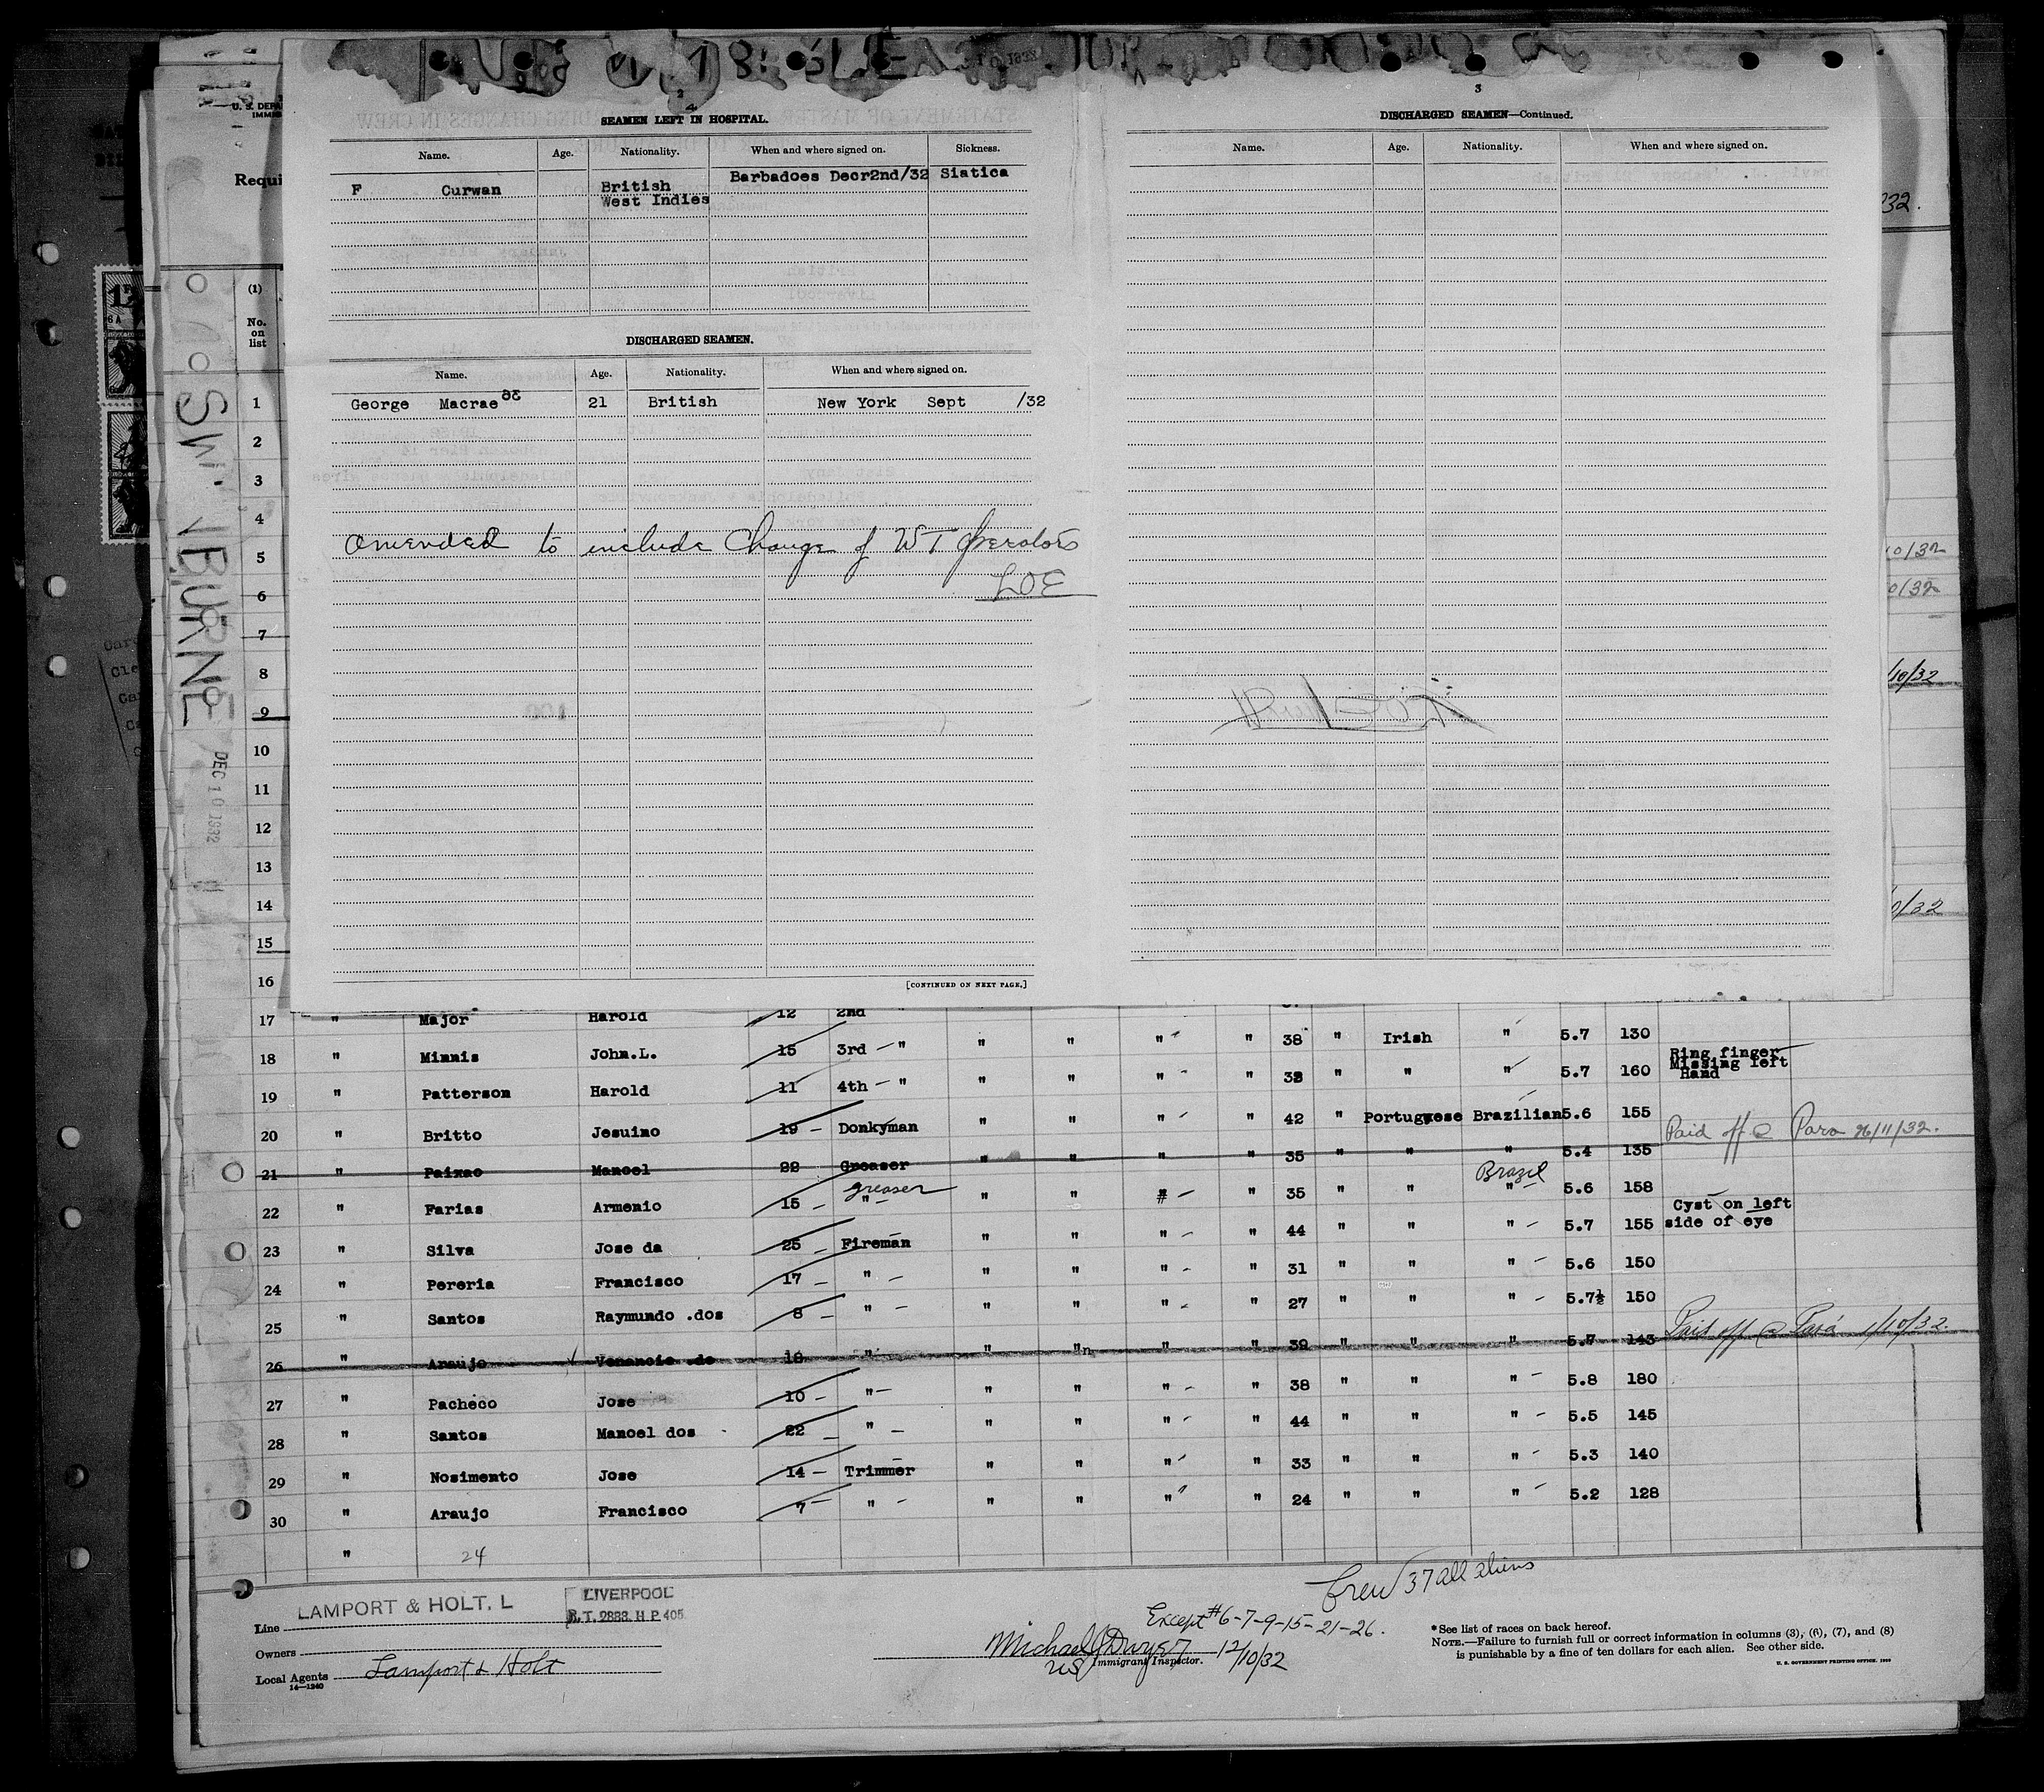 2
4
SEAMEN LEFT IN HOSPITAL.
Name. Age. Nationality. When and where signed on. Sickness.
F Curwan British West Indies Barbadoes Decr2nd/32 Siatica
DISCHARGED SEAMEN.
Name. Age. Nationality. When and where signed on.
George Macrae 21 British New York Sept /32
Amended to include Change of WT Operators
LOE
[CONTINUED ON NEXT PAGE.]
3
DISCHARGED SEAMEN—Continued.
Name. Age. Nationality. When and where signed on.
U. S. DEPA
IMMI
Requi
(1)
No.
on
list
1
2
3
4
5
6
7
8
9
10
11
12
13
14
15
16
SW BURNE
DEC 10 1932
232.
10/32
0/32
/10/32
0/32
17 " Major Harold 12 2nd "
18 " Minnis John.L. 15 3rd " " " " " 38 " Irish " 5.7 130
19 " Patterson Harold 11 4th " " " " " 38 " " " 5.7 160 Ring finger Missing left Hand
20 " Britto Jesuino 19 Donkyman " " " " 42 " Portuguese Brazilian 5.6 155
21 " Paixao Manoel 22 Greaser " " " " 35 " " " 5.4 135 Paid off @ Para 26/11/32.
22 " Farias Armenio 15 " greaser " " " " 35 " " " Brazil 5.6 158
23 " Silva Jose da 25 Fireman " " " " 44 " " " 5.7 155 Cyst on left side of eye
24 " Pereria Francisco 17 " " " " " 31 " " " 5.6 150
25 " Santos Raymundo .dos 8 " " " " " 27 " " " 5.7½ 150
26 " Araujo Venancio de 18 " " "n " " 39 " " " 5.7 143 Paid off @ Pará 1/10/32.
27 " Pacheco Jose 10 " " " " " 38 " " " 5.8 180
28 " Santos Manoel dos 22 " " " " " 44 " " " 5.5 145
29 " Nosimento Jose 14 Trimmer " " " " 33 " " " 5.3 140
30 " Araujo Francisco 7 " " " " " 24 " " " 5.2 128
" 24
Crew 37 all aliens
Except #6-7-9-15-21-26.
Line LAMPORT & HOLT. L
LIVERPOOL
R.T. 2888. H.P. 405
Owners
Local Agents Lamport & Holt
14—1240
Michael J Dwyer 12/10/32
US Immigrant Inspector.
*See list of races on back hereof.
NOTE.—Failure to furnish full or correct information in columns (3), (6), (7), and (8)
is punishable by a fine of ten dollars for each alien. See other side.
U. S. GOVERNMENT PRINTING OFFICE